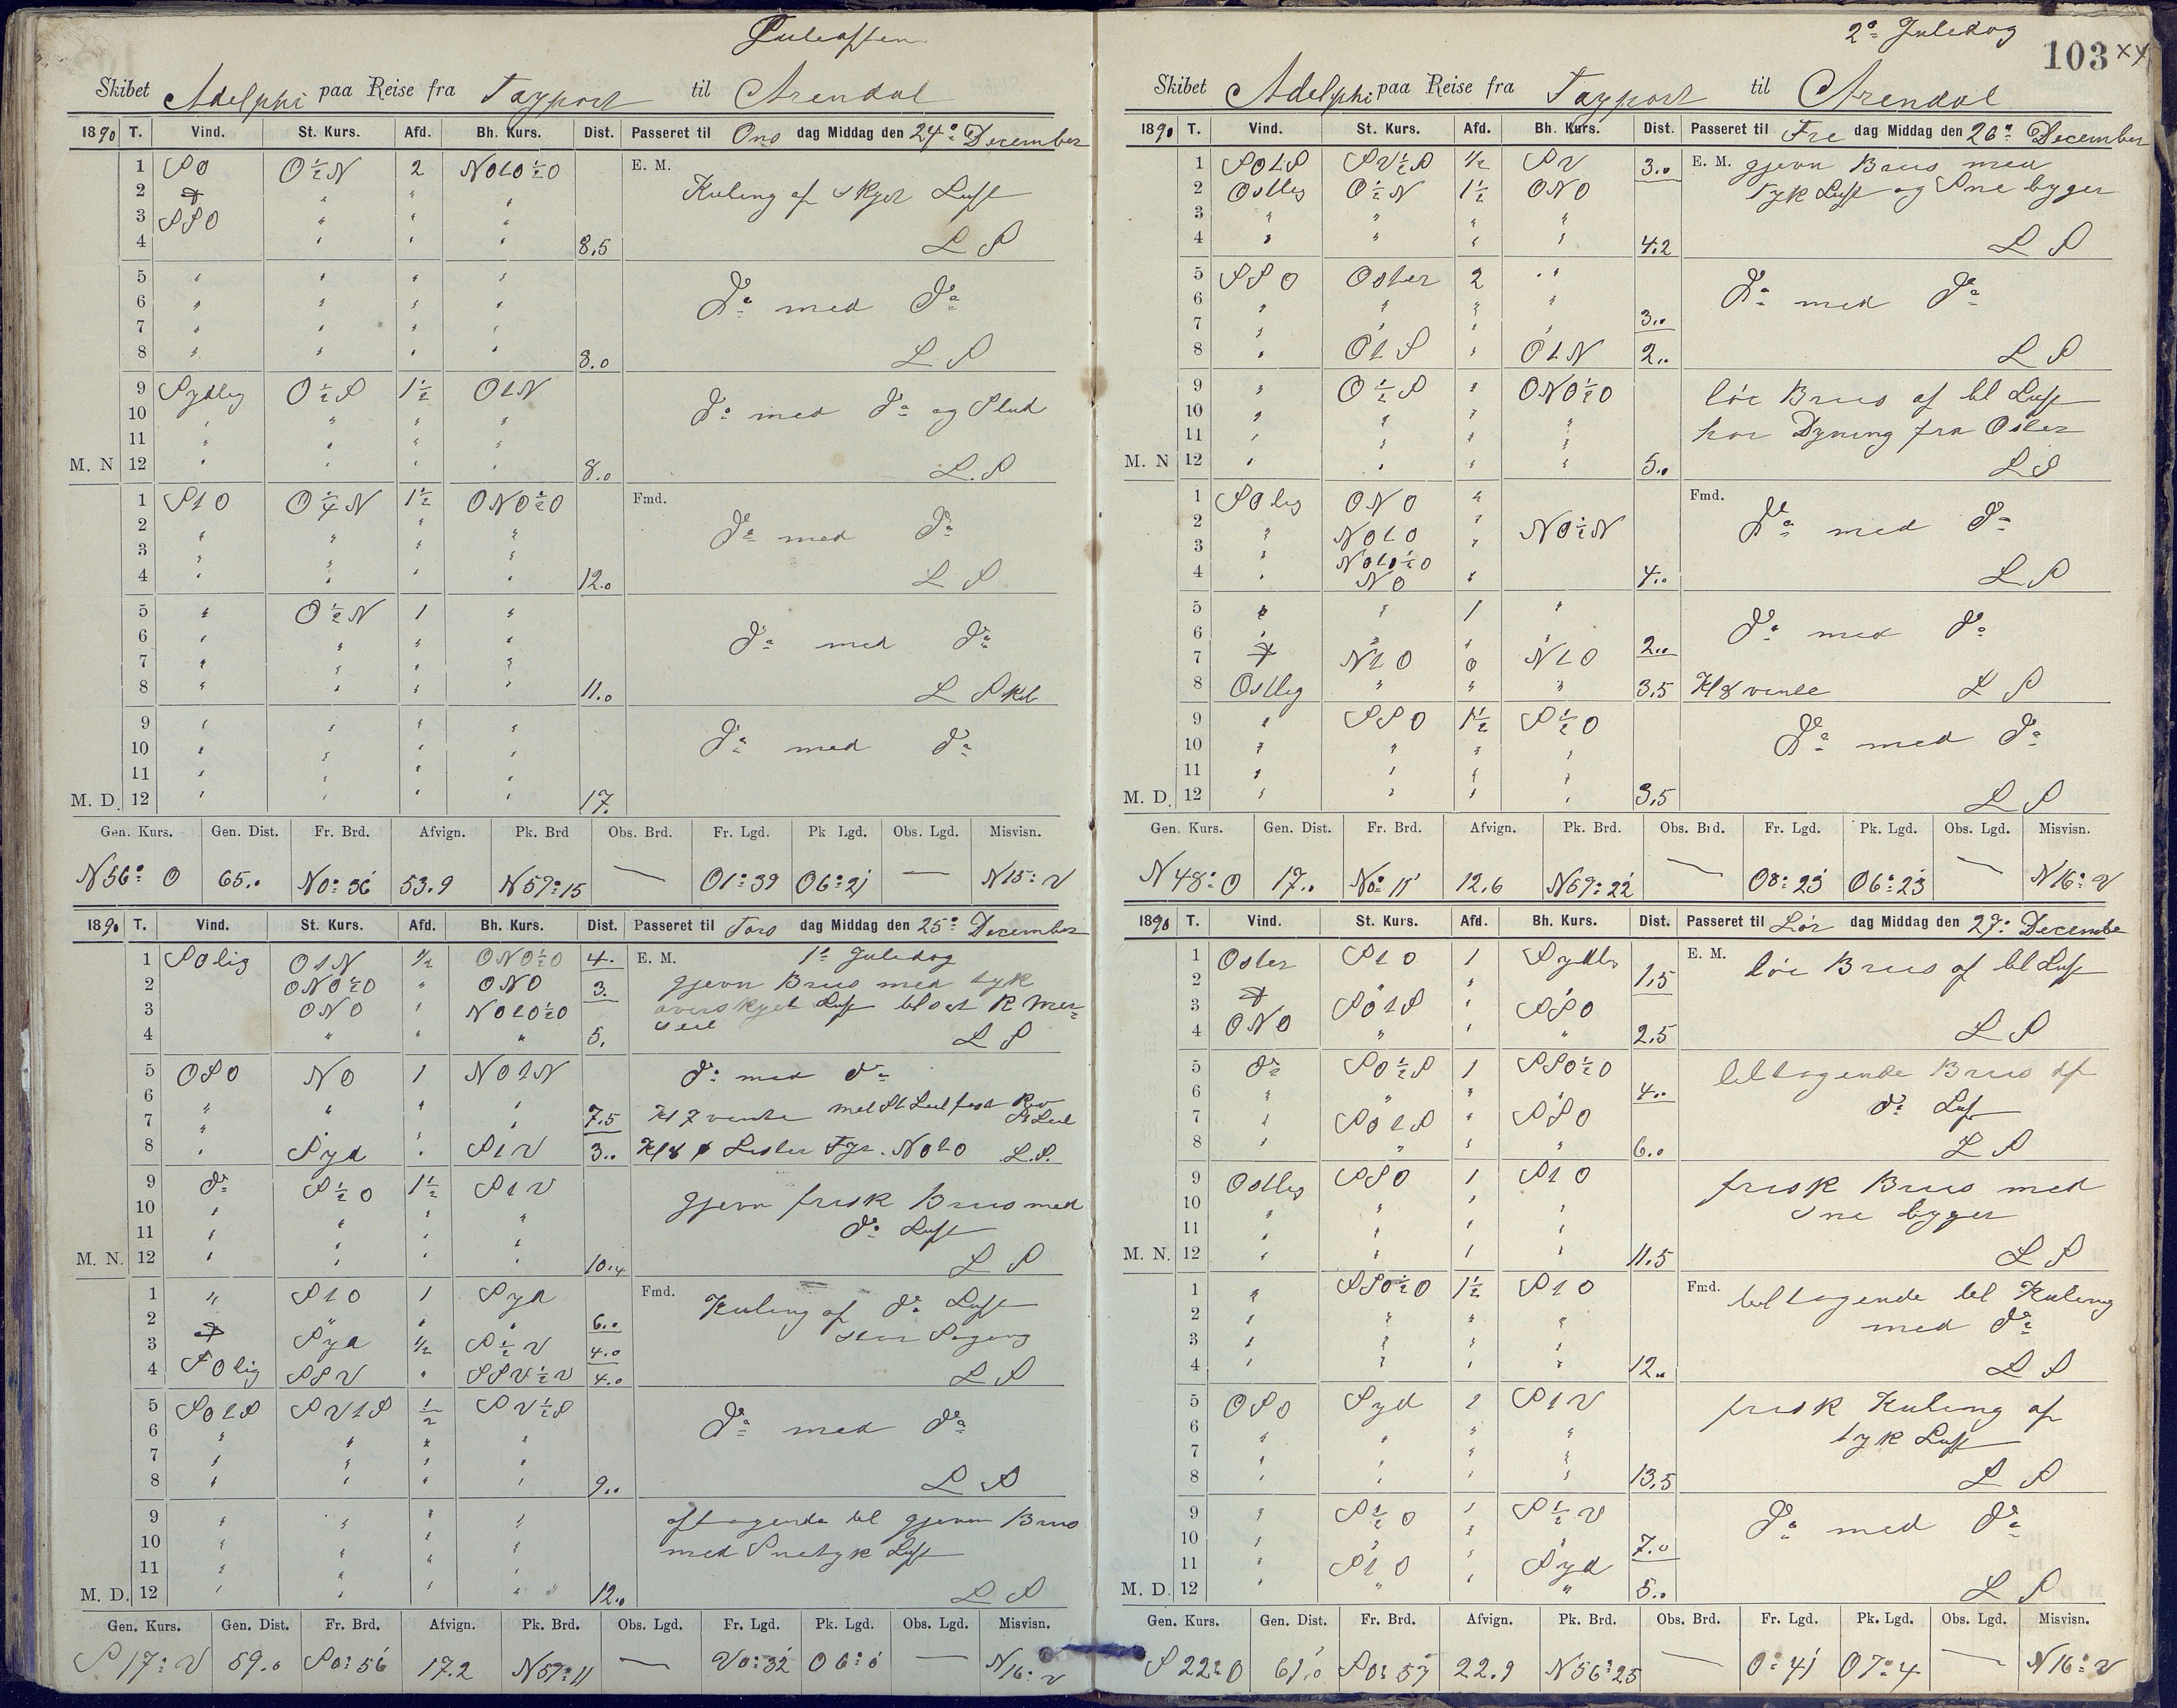 Juleaften
Skibet Adelphi paa Reise fra Tayport til Arendal
1890 T. Vind. St. Kurs. Afd. Bh. Kurs. Dist. Passeret til Ons dag Middag den 24de December
1 SO O½N 2 NOtO½O E. M.
2 " " " Kuling af skyet Luft
3 SSO " " "
4 " " " 8.5 L S
5 " " " "
6 " " " " Do med do
7 " " " "
8 " " " " 8.0 L S
9 Sydlig O½S 1½ OtN
10 " " " " Do med do og Slud
11 " " " "
M. N 12 " " " " 8.0 L. S
1 StO O¼N 1½ ONO½O Fmd.
2 " " " " Do med do
3 " " " "
4 " " " " 12.0 L S
5 " O½N 1 "
6 " " " " do med do
7 " " " "
8 " " " " 11.0 L S
9 " " " "
10 " " " " Do med do
11 " " " "
M. D. 12 " " " " 17.
Gen. Kurs. Gen. Dist. Fr. Brd. Afvign. Pk. Brd Obs. Brd. Fr. Lgd. Pk Lgd. Obs. Lgd. Misvisn.
N56° O 65.0 N0°36' 53.9 N57°15 — O1°39 O6°21' — N15° V
1890 T. Vind. St. Kurs. Afd. Bh. Kurs. Dist. Passeret til Tors dag Middag den 25de December
1 SOlig OtN ½ ONO½O 4. E. M. 1ste Juledag
2 ONO½O " ONO 3. gjevn Bris med tyk
3 ONO " NOtO½O overskyet Luft
4 " " " 5. seil L S
5 OSO NO 1 NOtN do med do
6 " " " "
7 " " " 7.5 Kl 7 vendte
8 " Syd " StV 3.0 Kl 8 Lister Fyr. NOtO L.S.
9 do S½O 1½ StV
10 " " " " gjevn frisk Bris med
11 " " " " do Luft
M. N. 12 " " " " 10.4 L S
1 " StO 1 Syd Fmd.
2 " " " 6.0 Kuling af do Luft
3 Syd ½ S½V 4.0
4 SOlig SSV " SSV½V 4.0 L S
5 SOtS SVtS ½ SV½S
6 " " " " Do med do
7 " " " "
8 " " " " 9.0 L S
9 " " " " aftagende til gjevn Bris
10 " " " " med Snetyk Luft
11 " " " "
M. D. 12 " " " " 12.0 L S
Gen. Kurs. Gen. Dist. Fr. Brd. Afvign. Pk. Brd. Obs. Lgd. Fr. Lgd. Pk. Lgd. Obs. Lgd. Misvisn.
S17° V 59.0 S0°56' 17.2 N57°11 — V0°32' O6°0' — N16° V
2de Juledag
103
Skibet Adelphi paa Reise fra Tayport til Arendal
1890 T. Vind. St. Kurs. Afd. Bh. Kurs. Dist. Passeret til Fre dag Middag den 26de December
1 SOtS SV½S ½ SV 3.0 E. M. gjevn Bris med
2 Ostlig O½N 1½ ONO tyk Luft og Sne byger
3 " " " "
4 " " " " 4.2 L S
5 SSO Oster 2 "
6 " " " " Do med do
7 " " " " 3.0
8 " OtS " OtN 2.0 L S
9 " O½S " ONO½O løi Bris af bl Luft
10 " " " " har Dyning fra Oster
11 " " " "
M. N 12 " " " " 5.0 L S
1 SOlig ONO " Fmd.
2 " NOtO " NO½N Do med do
3 " NOtO½O
4 " NO " 4.0 L S
5 " " 1 "
6 " " " " 2.0 Do med do
7 NtO 0 NtO
8 Ostlig " " " 3.5 Kl 8 vendte L S
9 " SSO 1½ S½O
10 " " " " Do med do
11 " " " "
M. D. 12 " " " " 3.5 L S
Gen. Kurs. Gen. Dist. Fr. Brd. Afvign. Pk. Brd. Obs. Brd. Fr. Lgd. Pk. Lgd. Obs. Lgd. Misvisn.
N48° O 17.0 N0°11' 12.6 N57°22' — O0°23' O6°23' — N16° V
1890 T. Vind. St. Kurs. Afd. Bh. Kurs. Dist. Passeret til Lør dag Middag den 27de December
1 Oster StO 1 Sydlig E. M. løi Bris af bl Luft
2 " " " 1.5
3 SOtS " SSO
4 ONO " " " 2.5 L S
5 do SO½S 1 SSO½O tiltagende Bris af
6 " " " " 4.0 do Luft
7 " SOtS " SSO
8 " " " " 6.0 L S
9 Ostlig SSO 1 StO frisk Bris med
10 " " " " Sne byger
11 " " " "
M. N. 12 " " " " 11.5 L S
1 " SSO½O 1½ StO Fmd. tiltagende til Kuling
2 " " " " med do
3 " " " "
4 " " " " 12.0 L S
5 OSO Syd 1 StV frisk Kuling af
6 " " " " tyk Luft
7 " " " "
8 " " " " 13.5 L S
9 " S½O " S½V Do med do
10 " " " " 7.0
11 " StO " Syd
M. D. 12 " " " " 5.0 L S
Gen. Kurs. Gen. Dist. Fr. Brd. Afvign. Pk. Brd. Obs. Brd. Fr. Lgd. Pk. Lgd. Obs. Lgd. Misvisn.
S22° O 61.0 S0°57 22.9 N56°25 — 0°41' O7°4 — N16° V